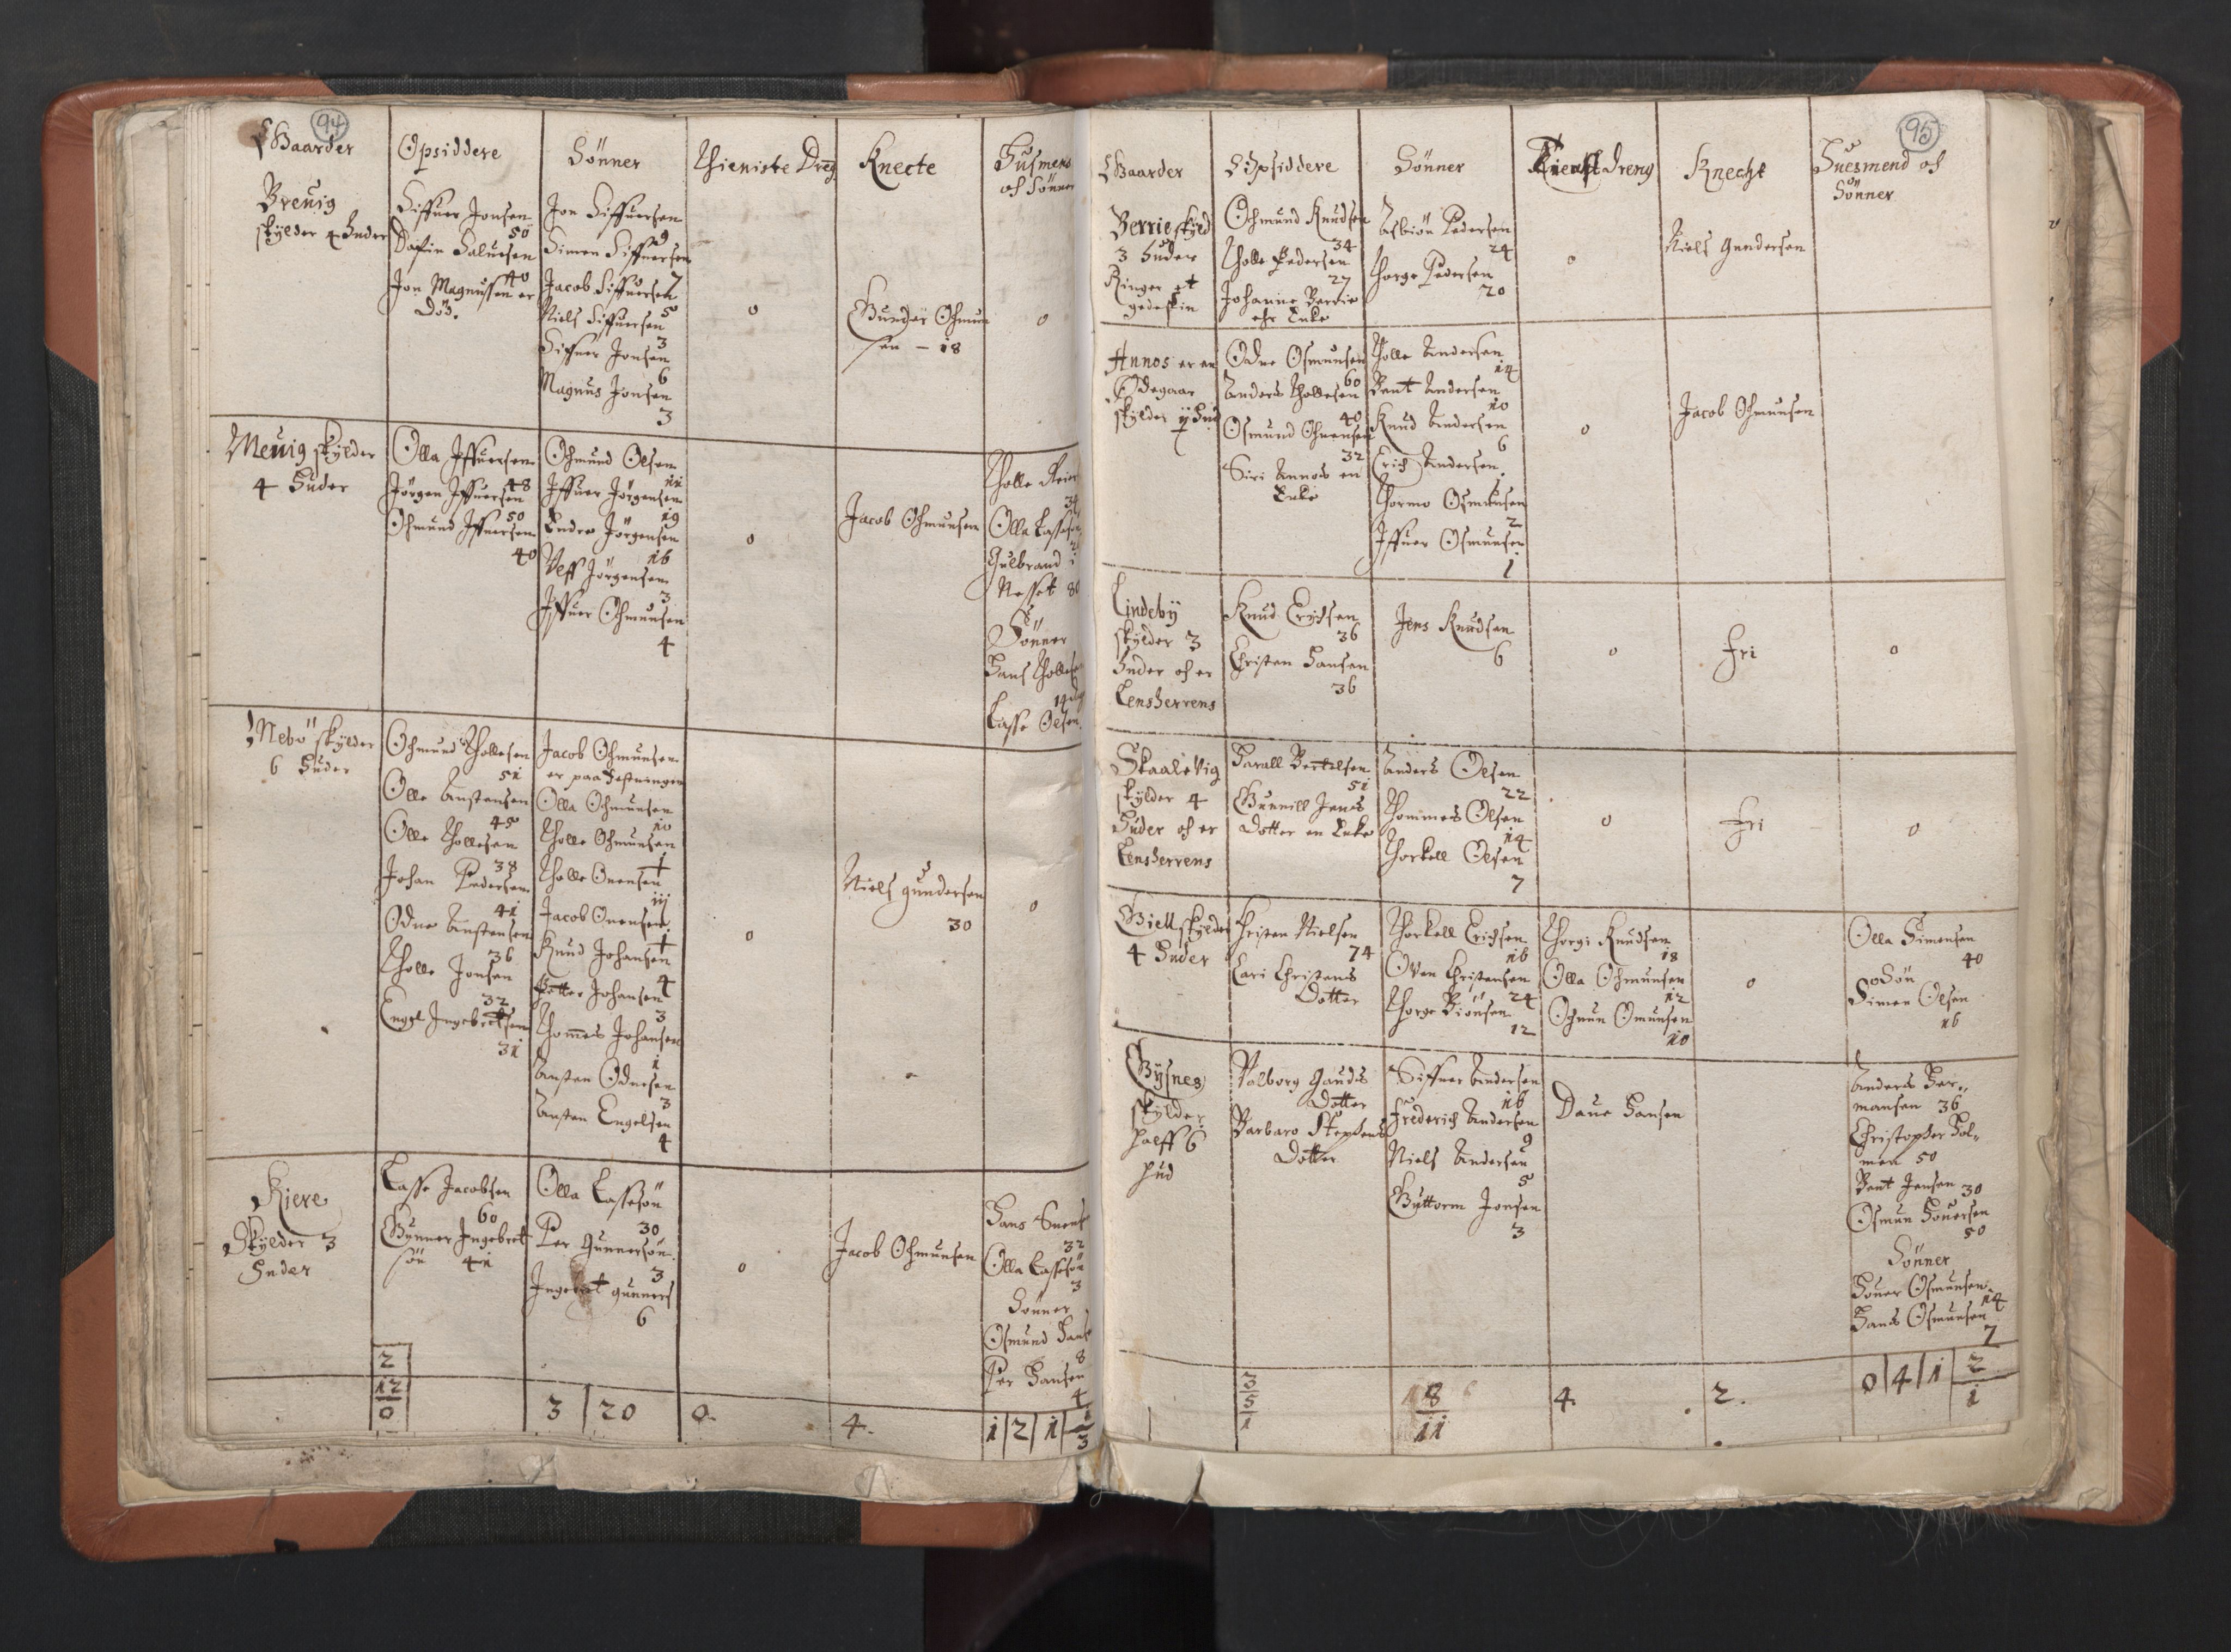 94
Gaarder
Opsiddere
Sönner
Thieniste Dreg
Knecte
Husmend
och Sönner
Breuig
skylder 4 Huder
Siffuer Jonsen
50
Dafin Saluesen
40
Jon Magnussen er
Död.
Jon Siffuersen
9
Simen Siffuersen
7
Jacob Siffuersen
5
Niels Siffuersen
3
Siffuer Jonsen
6
Magnus Jonsen
3
0
Gunder Ochmun
sen - 18
0
Meuig skylder
4 Huder
Olla Iffuersen
48
Jörgen Iffuersen
50
Ochmund Iffuersen
40
Ochmund Olsen
11
Iffuer Jörgensen
19
Endre Jörgensen
16
Ulff Jörgensen
3
Iffuer Ochmunsen
4
0
Jacob Ochmunsen
Tholle
34
Olla Lassesen
Gulbrand
Nesset 80
Sönner
Hans Tholle
14
Lasse Olsen
Nebö skylder
6 Huder
Ochmund Thollesen
51
Olle Anstensen
45
Olle Thollesen
38
Johan Pedersen
41
Odne Anstensen
36
Tholle Jonsen
32
Engel Ingebretsen
31
Jacob Ochmunsen
er paa Festningen
Olla Ochmunsen
10
Tholle Ochmunsen
1
Tholle Onensen
iij
Jacob Onensen
1
Knud Johansen
4
Petter Johansen
3
Thommes Johansen
1
Ansten Odnesen
3
Ansten Engelsen
4
0
Niels gundersen
30
0
Kiere
Skylder 3
Huder
Lasse Jacobsen
60
Gunner Ingebret
sön 41
Olla Lassesön
30
Per Gunnersön
3
Ingebret gunners
6
0
Jacob Ochmunsen
Hans Suens
32
Olla Lassesön
3
Sönner
Osmund Hans
8
Per Hansen
4
2
12
0
3 | 20
0.
4.
1 | 2 | 1 |
3
95
Gaarder
Opsiddere
Sönner
Tienst Dreng
Knecht
Huesmend och
Sönner
Berrie skyld
3 Huder
Ringer et
gedeskin
Ochmund Knudsen
34
Tholle Pedersen
27
Johanne Berrie
ehr Enke
Asbiön Pedersen
24
Thorge Pedersen
20
0
Niels Gundersen
Annos er en
Ödegaar
skylder ij Hud
Odne Osmunsen
60
Anders Thollesen
40
Osmund Ohnensen
32
Siri Annos en
Enke
Tholle Andersen
14
Bent Andersen
10
Knud Andersen
6
Erich Andersen
1
Thormo Osmunsen
2
Iffuer Osmunsen
1
0
Jacob Ochmunsen
Lindebÿ
skylder 3
Huder och er
Lensherrens
Knud Erichsen
36
Christen Hansen
36
Jens Knudsen
6
0
fri
0
Skaalevig
skylder 4
Huder och er
Lensherrens
Harall Bertelsen
51
Gunnill Jens
Dotter en Enke
Anders Olsen
22
Thommes Olsen
14
Thorkell Olsen
7
0
fri
0
Giell skylder
4 Huder
Christen Nielsen
74
Kari Christens
Dotter
Thorkell Erichsen
16
Oven Christensen
24
Thorge Biönsen
12
Thorgi Knudsen
18
Olla Ochmunsen
12
Ogmun Omunsen
10
0
Olla Simensen
40
Sön
Simen Olsen
16
Gÿsnes
skylder
halff 6
hud
Volborg Gauds
Dotter
Barbaro Stephens
Dotter
Siffuer Andersen
16
Frederich Andersen
9
Niels Andersen
5
Guttorm Jonsen
3
Daue Hansen
Anders Her„
mansen 36
Christopher Hol„
men 50
Bent Jensen 30
Osmun Houersen
50
Sönner
Houer Osmunsen
14
Hans Osmunsen
7
3
5
1
8
11
4.
2.
0 | 4 | 1 | 2
1